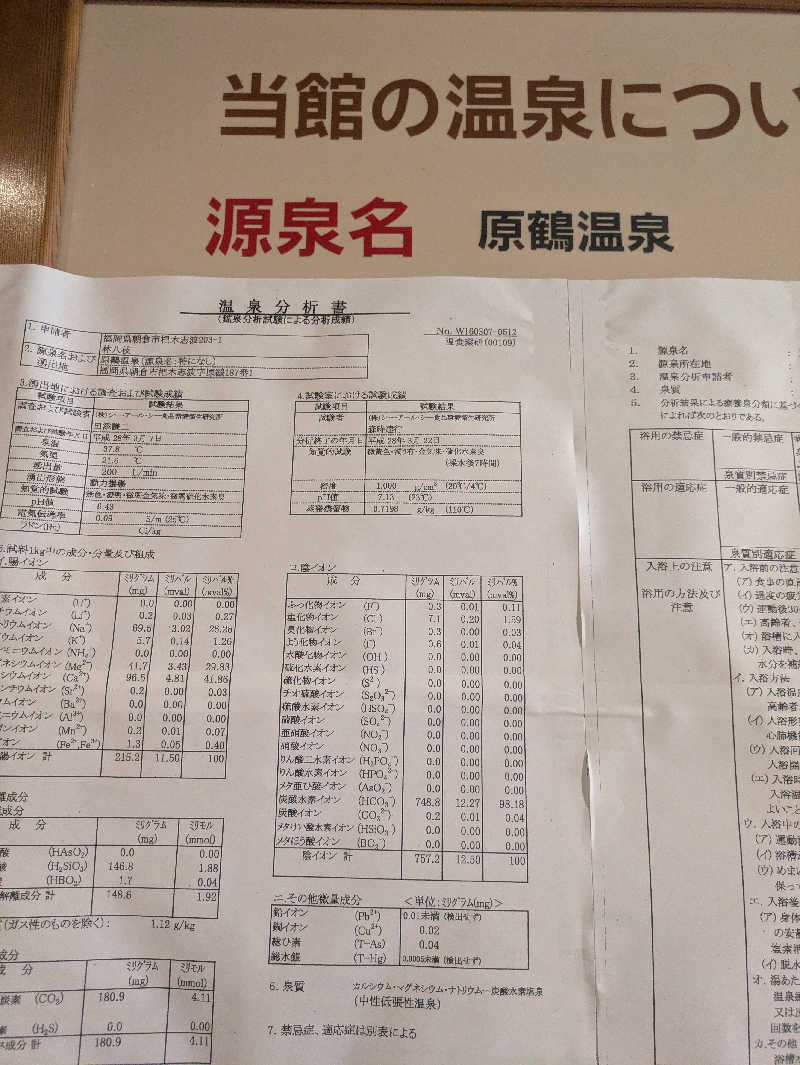 当館の温泉につい
源泉名 原鶴温泉
温泉分析書
(鉱泉分析試験による分析成績)
No. W160307-0512
温食薬研(00109)
1. 申請者 福岡県朝倉市杷木志波203-1
林八枝
2. 源泉名および湧出地 原鶴温泉(源泉名:特になし)
福岡県朝倉市杷木志波字原鶴187番1
3.湧出地における調査および試験成績
試験項目 試験結果
調査および試験者 (株)シー・アール・シー食品環境衛生研究所
調査および試験年月日 平成 28年 3月 7日
泉温 37.8 ℃
気温 21.5 ℃
湧出量 200 L/min
湧出形態 動力揚湯
知覚的試験
pH値 6.43
電気伝導率 0.09 S/m (25℃)
ラドン(Rn) Ci/kg
4.試験室における試験成績
試験項目 試験結果
試験者 (株)シー・アール・シー食品環境衛生研究所
分析終了の年月日 平成 28年 3月 22日
知覚的試験
(採水後7時間)
密度 1.000 g/cm³ (20℃/4℃)
pH値 7.13 (23℃)
蒸発残留物 0.7198 g/kg (110℃)
5.試料1kg中の成分・分量及び組成
イ.陽イオン
成分 ミリグラム(mg) ミリバル(mval) ミリバル%(mval%)
素イオン (H⁺) 0.0 0.00 0.00
チウムイオン (Li⁺) 0.2 0.03 0.27
トリウムイオン (Na⁺) 69.5 3.02 26.26
ウムイオン (K⁺) 5.7 0.14 1.26
ンモニウムイオン (NH₄⁺) 0.0 0.00 0.00
ネシウムイオン (Mg²⁺) 41.7 3.43 29.83
シウムイオン (Ca²⁺) 96.5 4.81 41.86
ンチウムイオン (Sr²⁺) 0.2 0.00 0.03
ウムイオン (Ba²⁺) 0.0 0.00 0.00
ニウムイオン (Al³⁺) 0.0 0.00 0.00
ンイオン (Mn²⁺) 0.2 0.01 0.07
オン (Fe²⁺,Fe³⁺) 1.3 0.05 0.40
陽イオン 計 215.2 11.50 100
ロ.陰イオン
成分 ミリグラム(mg) ミリバル(mval) ミリバル%(mval%)
ふっ化物イオン (F⁻) 0.3 0.01 0.11
塩化物イオン (Cl⁻) 7.1 0.20 1.59
臭化物イオン (Br⁻) 0.3 0.00 0.03
よう化物イオン (I⁻) 0.6 0.01 0.04
水酸化物イオン (OH⁻) 0.0 0.00 0.00
硫化水素イオン (HS⁻) 0.0 0.00 0.00
硫化物イオン (S²⁻) 0.0 0.00 0.00
チオ硫酸イオン (S₂O₃²⁻) 0.0 0.00 0.00
硫酸水素イオン (HSO₄⁻) 0.0 0.00 0.00
硫酸イオン (SO₄²⁻) 0.0 0.00 0.00
亜硝酸イオン (NO₂⁻) 0.0 0.00 0.00
硝酸イオン (NO₃⁻) 0.0 0.00 0.00
りん酸二水素イオン (H₂PO₄⁻) 0.0 0.00 0.00
りん酸水素イオン (HPO₄²⁻) 0.0 0.00 0.00
メタ亜ひ酸イオン (AsO₂⁻) 0.0 0.00 0.00
炭酸水素イオン (HCO₃⁻) 748.8 12.27 98.18
炭酸イオン (CO₃²⁻) 0.2 0.01 0.04
メタけい酸水素イオン (HSiO₃⁻) 0.0 0.00 0.00
メタほう酸イオン (BO₂⁻) 0.0 0.00 0.00
陰イオン 計 757.2 12.50 100
離成分
成分
成分 ミリグラム(mg) ミリモル(mmol)
酸 (HAsO₂) 0.0 0.00
酸 (H₂SiO₃) 146.8 1.88
(HBO₂) 1.7 0.04
解離成分 計 148.6 1.92
(ガス性のものを除く): 1.12 g/kg
成分
成分 ミリグラム(mg) ミリモル(mmol)
炭素 (CO₂) 180.9 4.11
素 (H₂S) 0.0 0.00
ス成分 計 180.9 4.11
ニ.その他微量成分 <単位:ミリグラム(mg)>
鉛イオン (Pb²⁺) 0.01未満(検出せず)
銅イオン (Cu²⁺) 0.02
総ひ素 (T-As) 0.04
総水銀 (T-Hg) 0.0005未満(検出せず)
6. 泉質 カルシウム・マグネシウム・ナトリウム-炭酸水素塩泉
(中性低張性温泉)
7. 禁忌症、適応症は別表による
1. 源泉名 :
2. 源泉所在地 :
3. 温泉分析申請者 :
4. 泉質 :
5. 分析結果による療養泉分類に基づ
によれば次のとおりである。
浴用の禁忌症 一般的禁忌症
泉質別禁忌症
浴用の適応症 一般的適応症
泉質別適応症
入浴上の注意
浴用の方法及び注意
ア.入浴前の注意
(ア) 食事の直
(イ) 過度の疲
(ウ) 運動後30
(エ) 高齢者、
(オ) 浴槽に入
(カ) 入浴時、
水分を補
イ.入浴方法
(ア) 入浴温
高齢者
(イ) 入浴形
心肺機
(ウ) 入浴回
入浴開
(エ) 入浴時
入浴温
よいこと
ウ.入浴中の
(ア) 運動
(イ) 浴槽
(ウ) めま
保っ
エ.入浴後
(ア) 身体
の安
塩素
(イ) 脱水
オ.湯あた
温泉
又は
回数を
カ.その他
浴槽